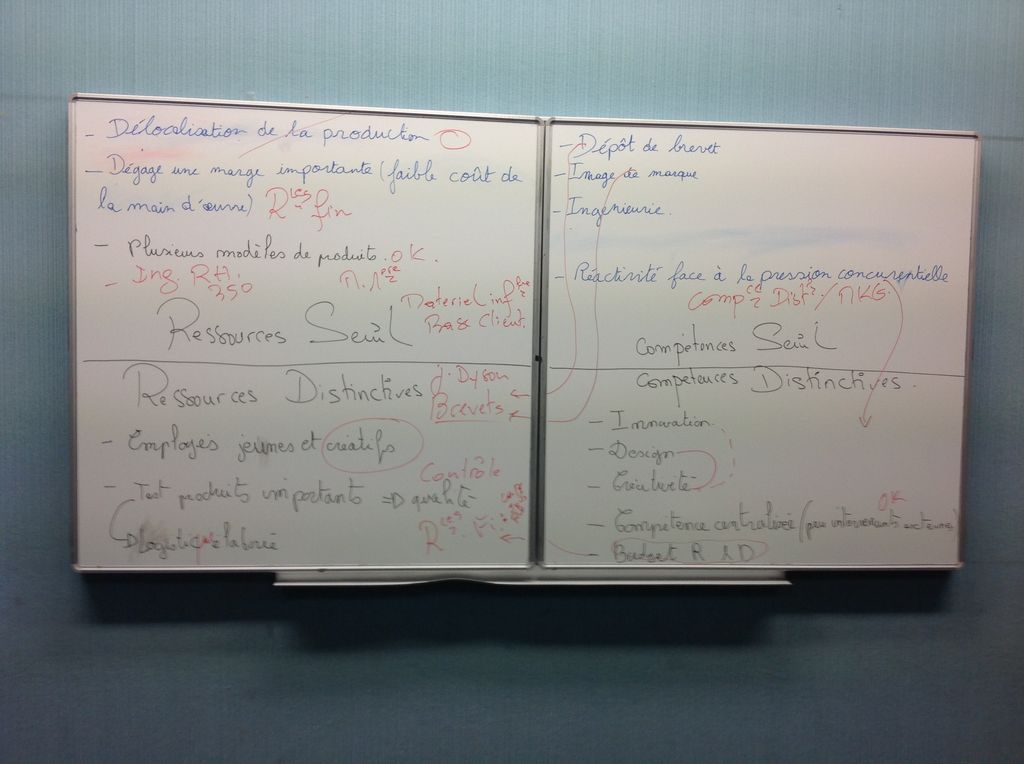 - Délocalisation de la production O
- Dégage une marge importante (faible coût de
la main d'œuvre) Rces fin
- Plusieurs modèles de produits. OK.
- Ing. RH.
350
Materiel inf
Base Client.
Ressources Seuil
Ressources Distinctives
J. Dyson
Brevets
- Employés jeunes et créatifs
Contrôle
- Test produits importants => qualité
Logistique élaborée
- Dépôt de brevet
- Image de marque
- Ingénieurie.
- Réactivité face à la pression concurentielle
Compces Dist / MKG.
Compétences Seuil
Compétences Distinctives.
- Innovation.
- Design
- Créativité
OK
- Compétence centralisée (peu intervenants exterieurs)
- Budget R & D